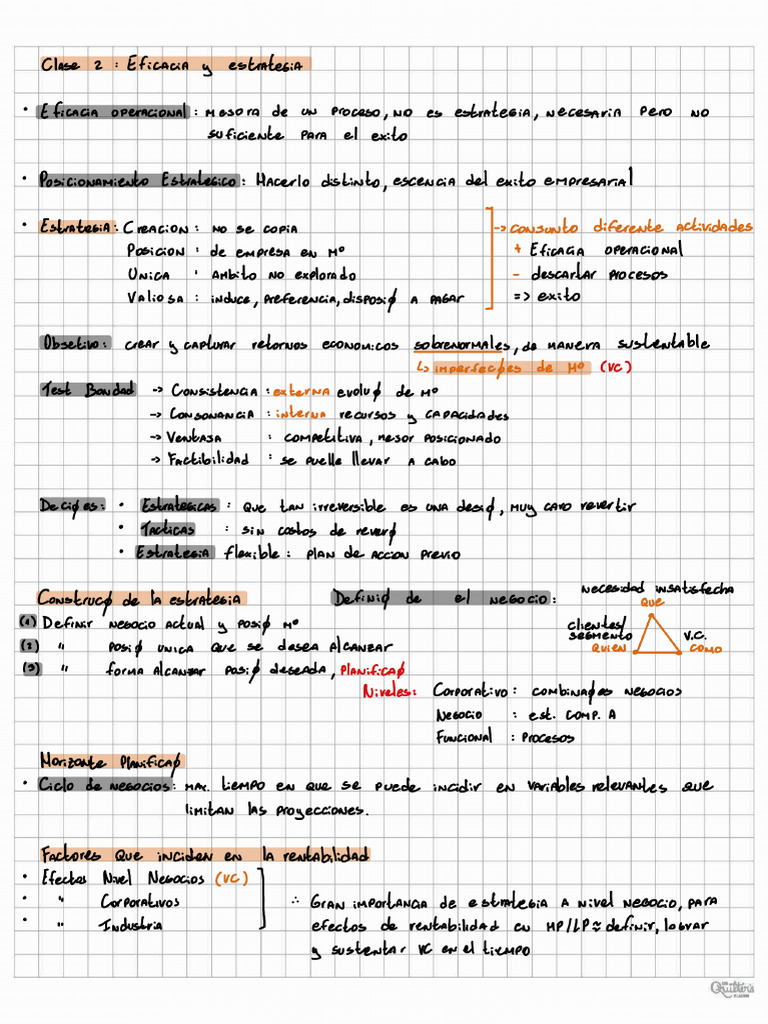 Clase 2 : Eficacia y estrategia
• Eficacia operacional : mejora de un proceso, no es estrategia, necesaria pero no
suficiente para el exito
• Posicionamiento Estrategico : Hacerlo distinto, escencia del exito empresarial
• Estrategia : Creacion : no se copia
Posicion : de empresa en Mº
Unica : Ambito no explorado
Valiosa : induce, preferencia, disposiø a pagar
-> conjunto diferente actividades
+ Eficacia operacional
- descartar procesos
=> exito
Objetivo : crear y capturar retornos economicos sobrenormales, de manera sustentable
↳ imperfecøes de Mº (VC)
Test Bondad -> Consistencia : externa evoluø de Mº
-> Consonancia : interna recursos y capacidades
-> Ventaja : competitiva, mejor posicionado
-> Factibilidad : se puede llevar a cabo
Deciøes : • Estrategicas : que tan irreversible es una desiø, muy caro revertir
• Tacticas : sin costos de reverø
• Estrategia flexible : plan de accion previo
Construcø de la estrategia
(1) Definir negocio actual y posiø Mº
(2) " posiø unica que se desea alcanzar
(3) " forma alcanzar posiø deseada, planificaø
Definiø de el negocio :
necesidad insatisfecha
QUE
clientes/
segmento
QUIEN
V.C.
COMO
Niveles : Corporativo : combinaøes negocios
Negocio : est. comp. A
Funcional : procesos
Horizonte Planificaø
• Ciclo de negocios : max. tiempo en que se puede incidir en variables relevantes que
limitan las proyecciones.
Factores que inciden en la rentabilidad
• Efectos Nivel Negocios (VC)
• " Corporativos
• " Industria
∴ Gran importancia de estrategia a nivel negocio, para
efectos de rentabilidad en MP/LP ≈ definir, lograr
y sustentar VC en el tiempo